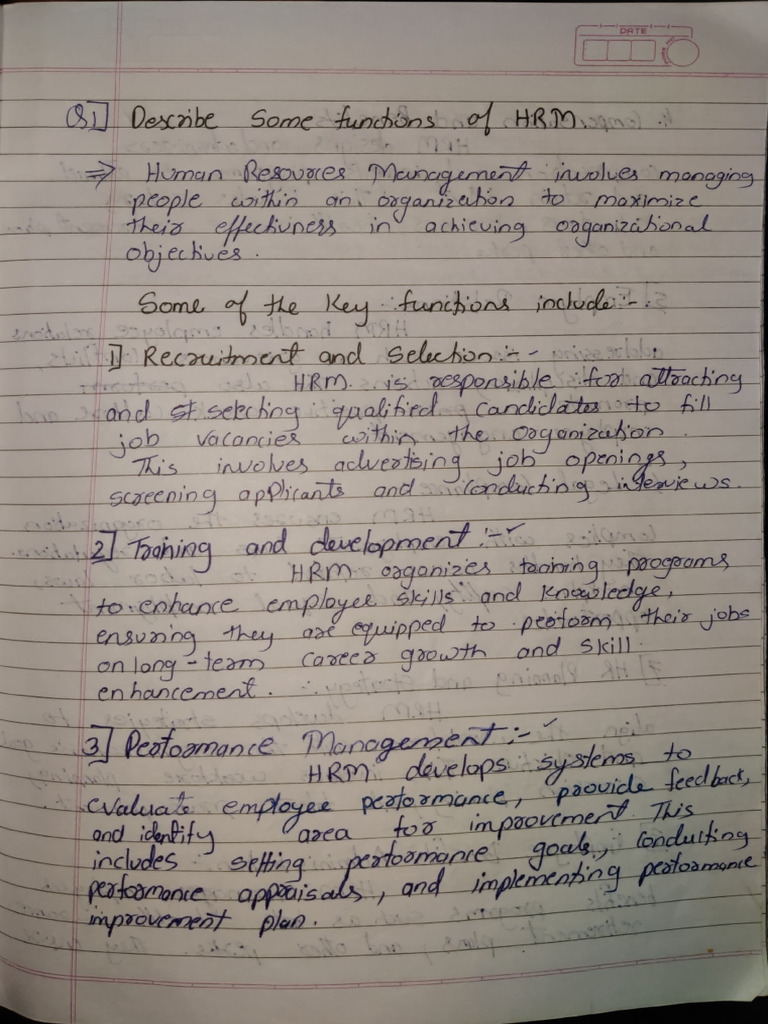 DATE
Q1] Describe Some functions of HRM.
⇒ Human Resources Management involves managing
people within an organization to maximize
their effectivness in achieving organizational
objectives.
Some of the Key functions include:-
1] Recruitment and Selection:-
HRM is responsible for attracting
and selecting qualified candidates to fill
job vacancies within the organization.
This involves advertising job openings,
screening applicants and conducting interviews.
2] Training and development:-
HRM organizes training programs
to enhance employee skills and knowledge,
ensuring they are equipped to perform their jobs
on long-term career growth and skill
enhancement.
3] Performance Management:-
HRM develops systems to
evaluate employee performance, provide feedback,
and identify area for improvement. This
includes setting performance goals, conducting
performance appraisals, and implementing performance
improvement plan.